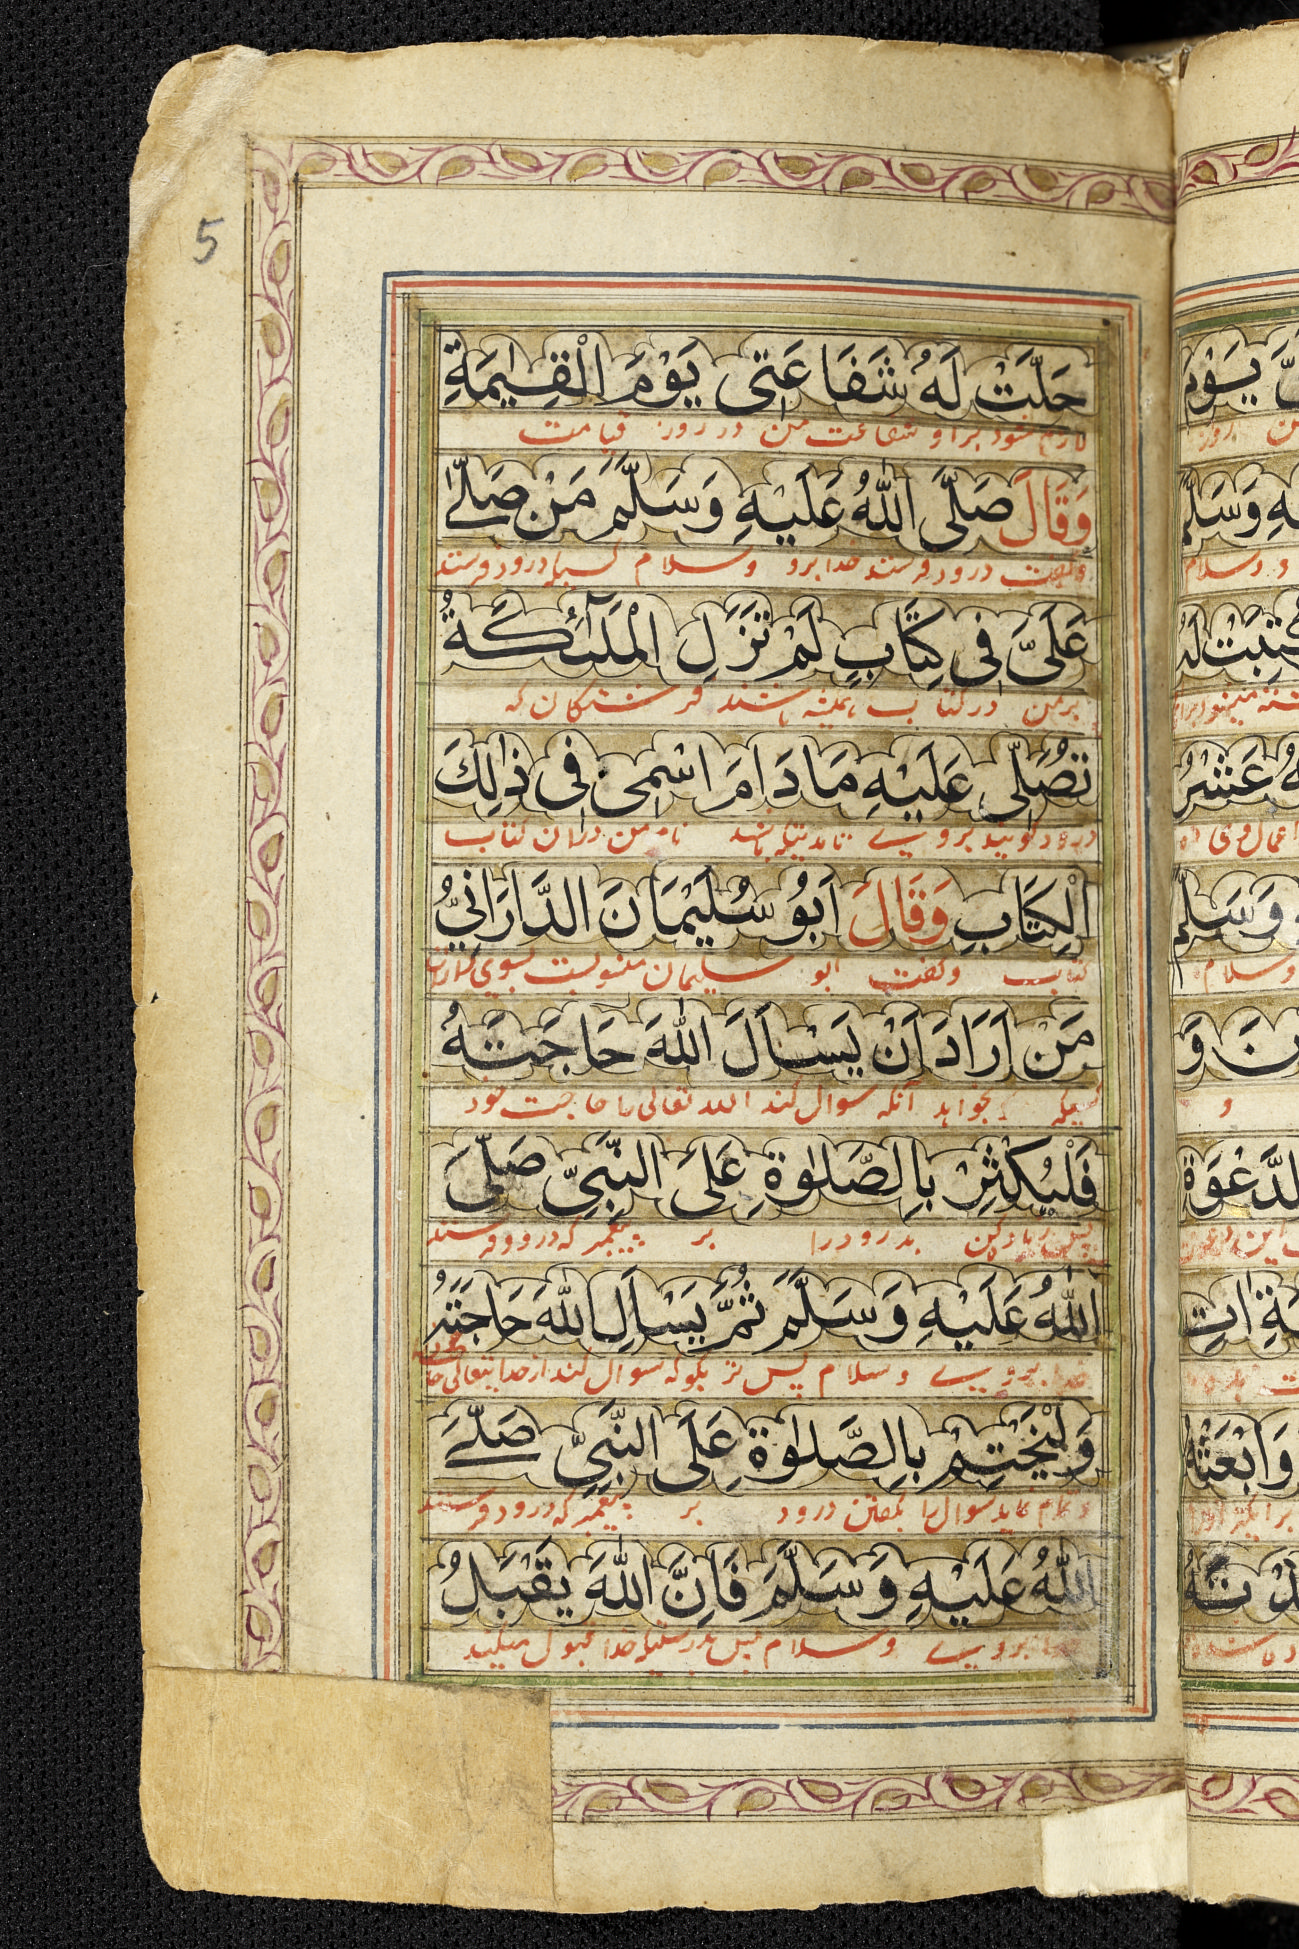 5
حَلَّتْ لَهُ شَفَاعَتِى يَوْمَ الْقِيٰمَةِ
لازم شود براو شفاعت من در روز قیامت
وَقَالَ صَلَّى اللّٰهُ عَلَيْهِ وَسَلَّمَ مَنْ صَلّٰى
وگفت درود فرستد خدا برو وسلام کسیکه درود فرستد
عَلَىَّ فِى كِتَابٍ لَمْ تَزَلِ الْمَلٰٓئِكَةُ
برمن در کتاب همیشه باشند فرشتگان که
تُصَلِّى عَلَيْهِ مَادَامَ اسْمِى فِى ذٰلِكَ
درود گویند بروی تا مدتیکه باشد نام من دران کتاب
الْكِتَابِ وَقَالَ اَبُوْ سُلَيْمَانَ الدَّارَانِيُّ
کتاب وگفت ابو سلیمان منسوبست بسوی
مَنْ اَرَادَ اَنْ يَسْاَلَ اللّٰهَ حَاجَتَهُ
کسیکه بخواهد آنکه سوال کند الله تعالی را حاجت خود
فَلْيُكْثِرْ بِالصَّلٰوةِ عَلَى النَّبِىِّ صَلَّى
پس درود را بر پیغمبر که درود فرستد
اللّٰهُ عَلَيْهِ وَسَلَّمَ ثُمَّ يَسْاَلِ اللّٰهَ حَاجَتَهُ
خدا بروی وسلام پس سوال کند از خدایتعالی
وَلْيَخْتِمْ بِالصَّلٰوةِ عَلَى النَّبِىِّ صَلَّى
وتمام نماید سوال را بگفتن درود بر پیغمبر که درود فرستد
اللّٰهُ عَلَيْهِ وَسَلَّمَ فَاِنَّ اللّٰهَ يَقْبَلُ
خدا بروی وسلام پس بدرستیکه خدا قبول میکند